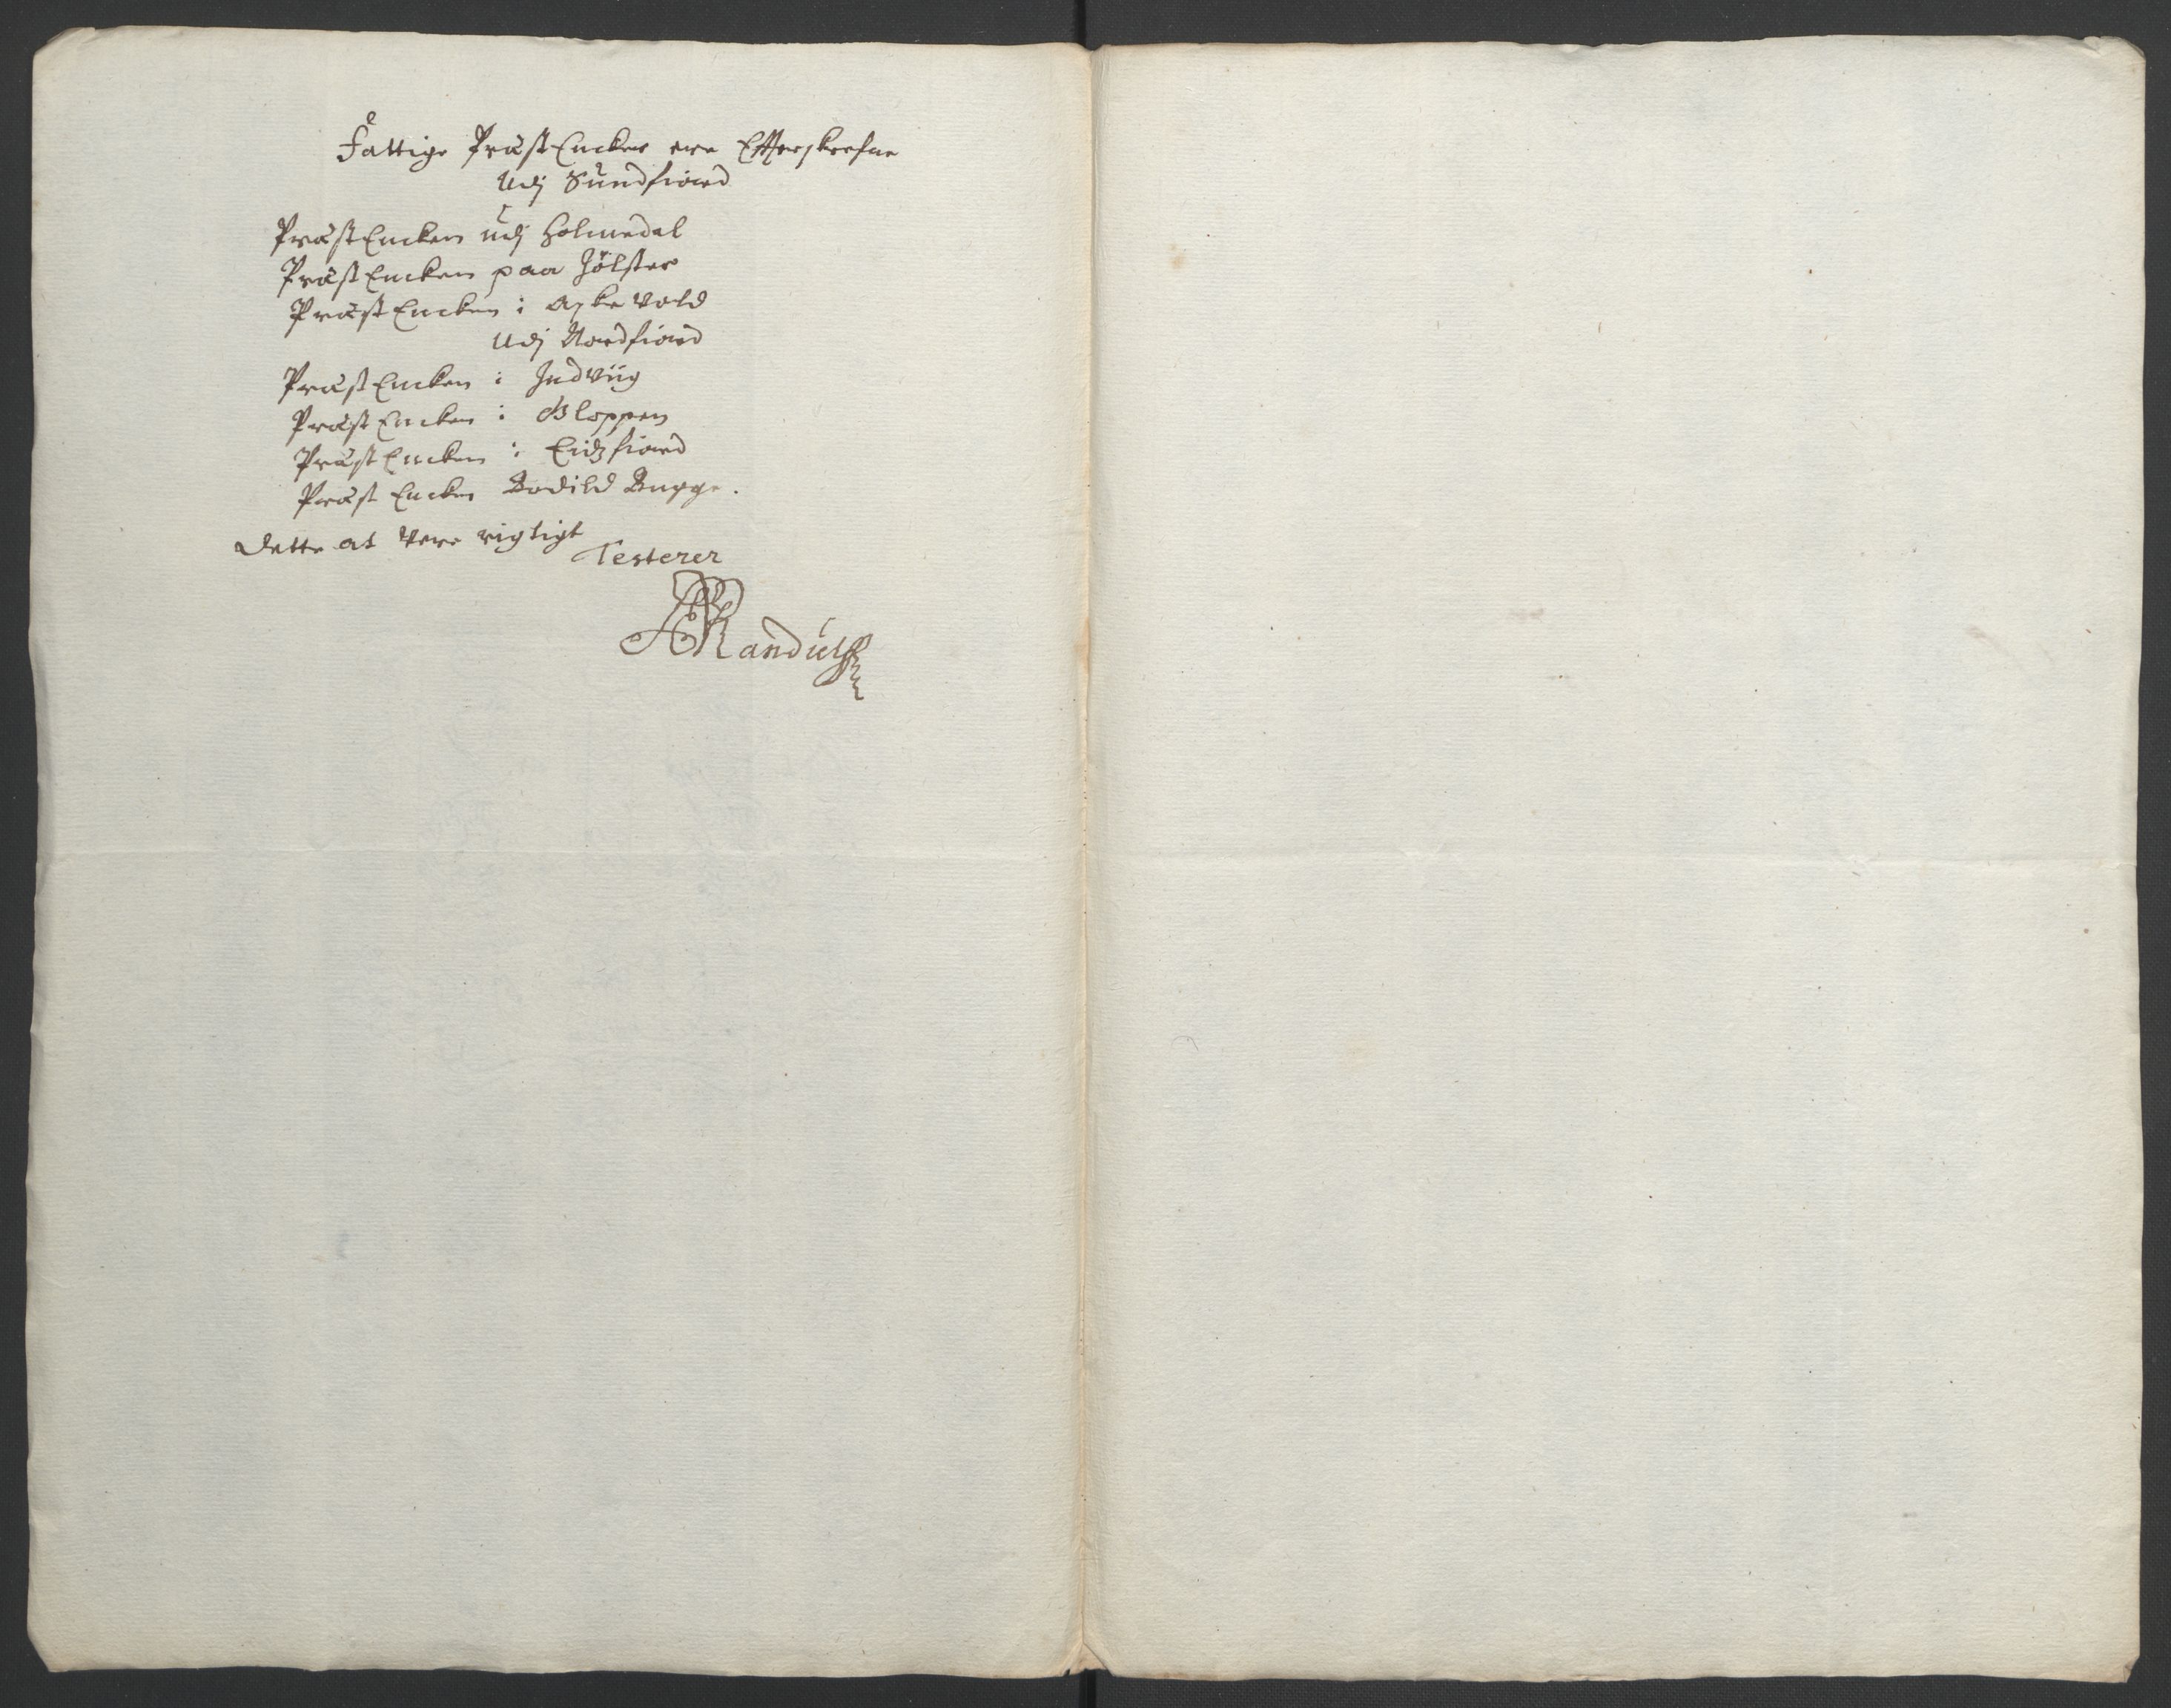 Fattige PræstEncker ere Effterskrefne
Udj Sündfiord
PræstEncken üdj Holmedal
PræstEncken paa Jölster
PræstEncken i Askevold
Udj Nordfiord
PræstEncken i Indviig
PræstEncken i Gloppen
PræstEncken i Eidzfiord
PræstEncken Bodild Bugge.
Dette at Vere rigtigt
Testerer
ARandülff